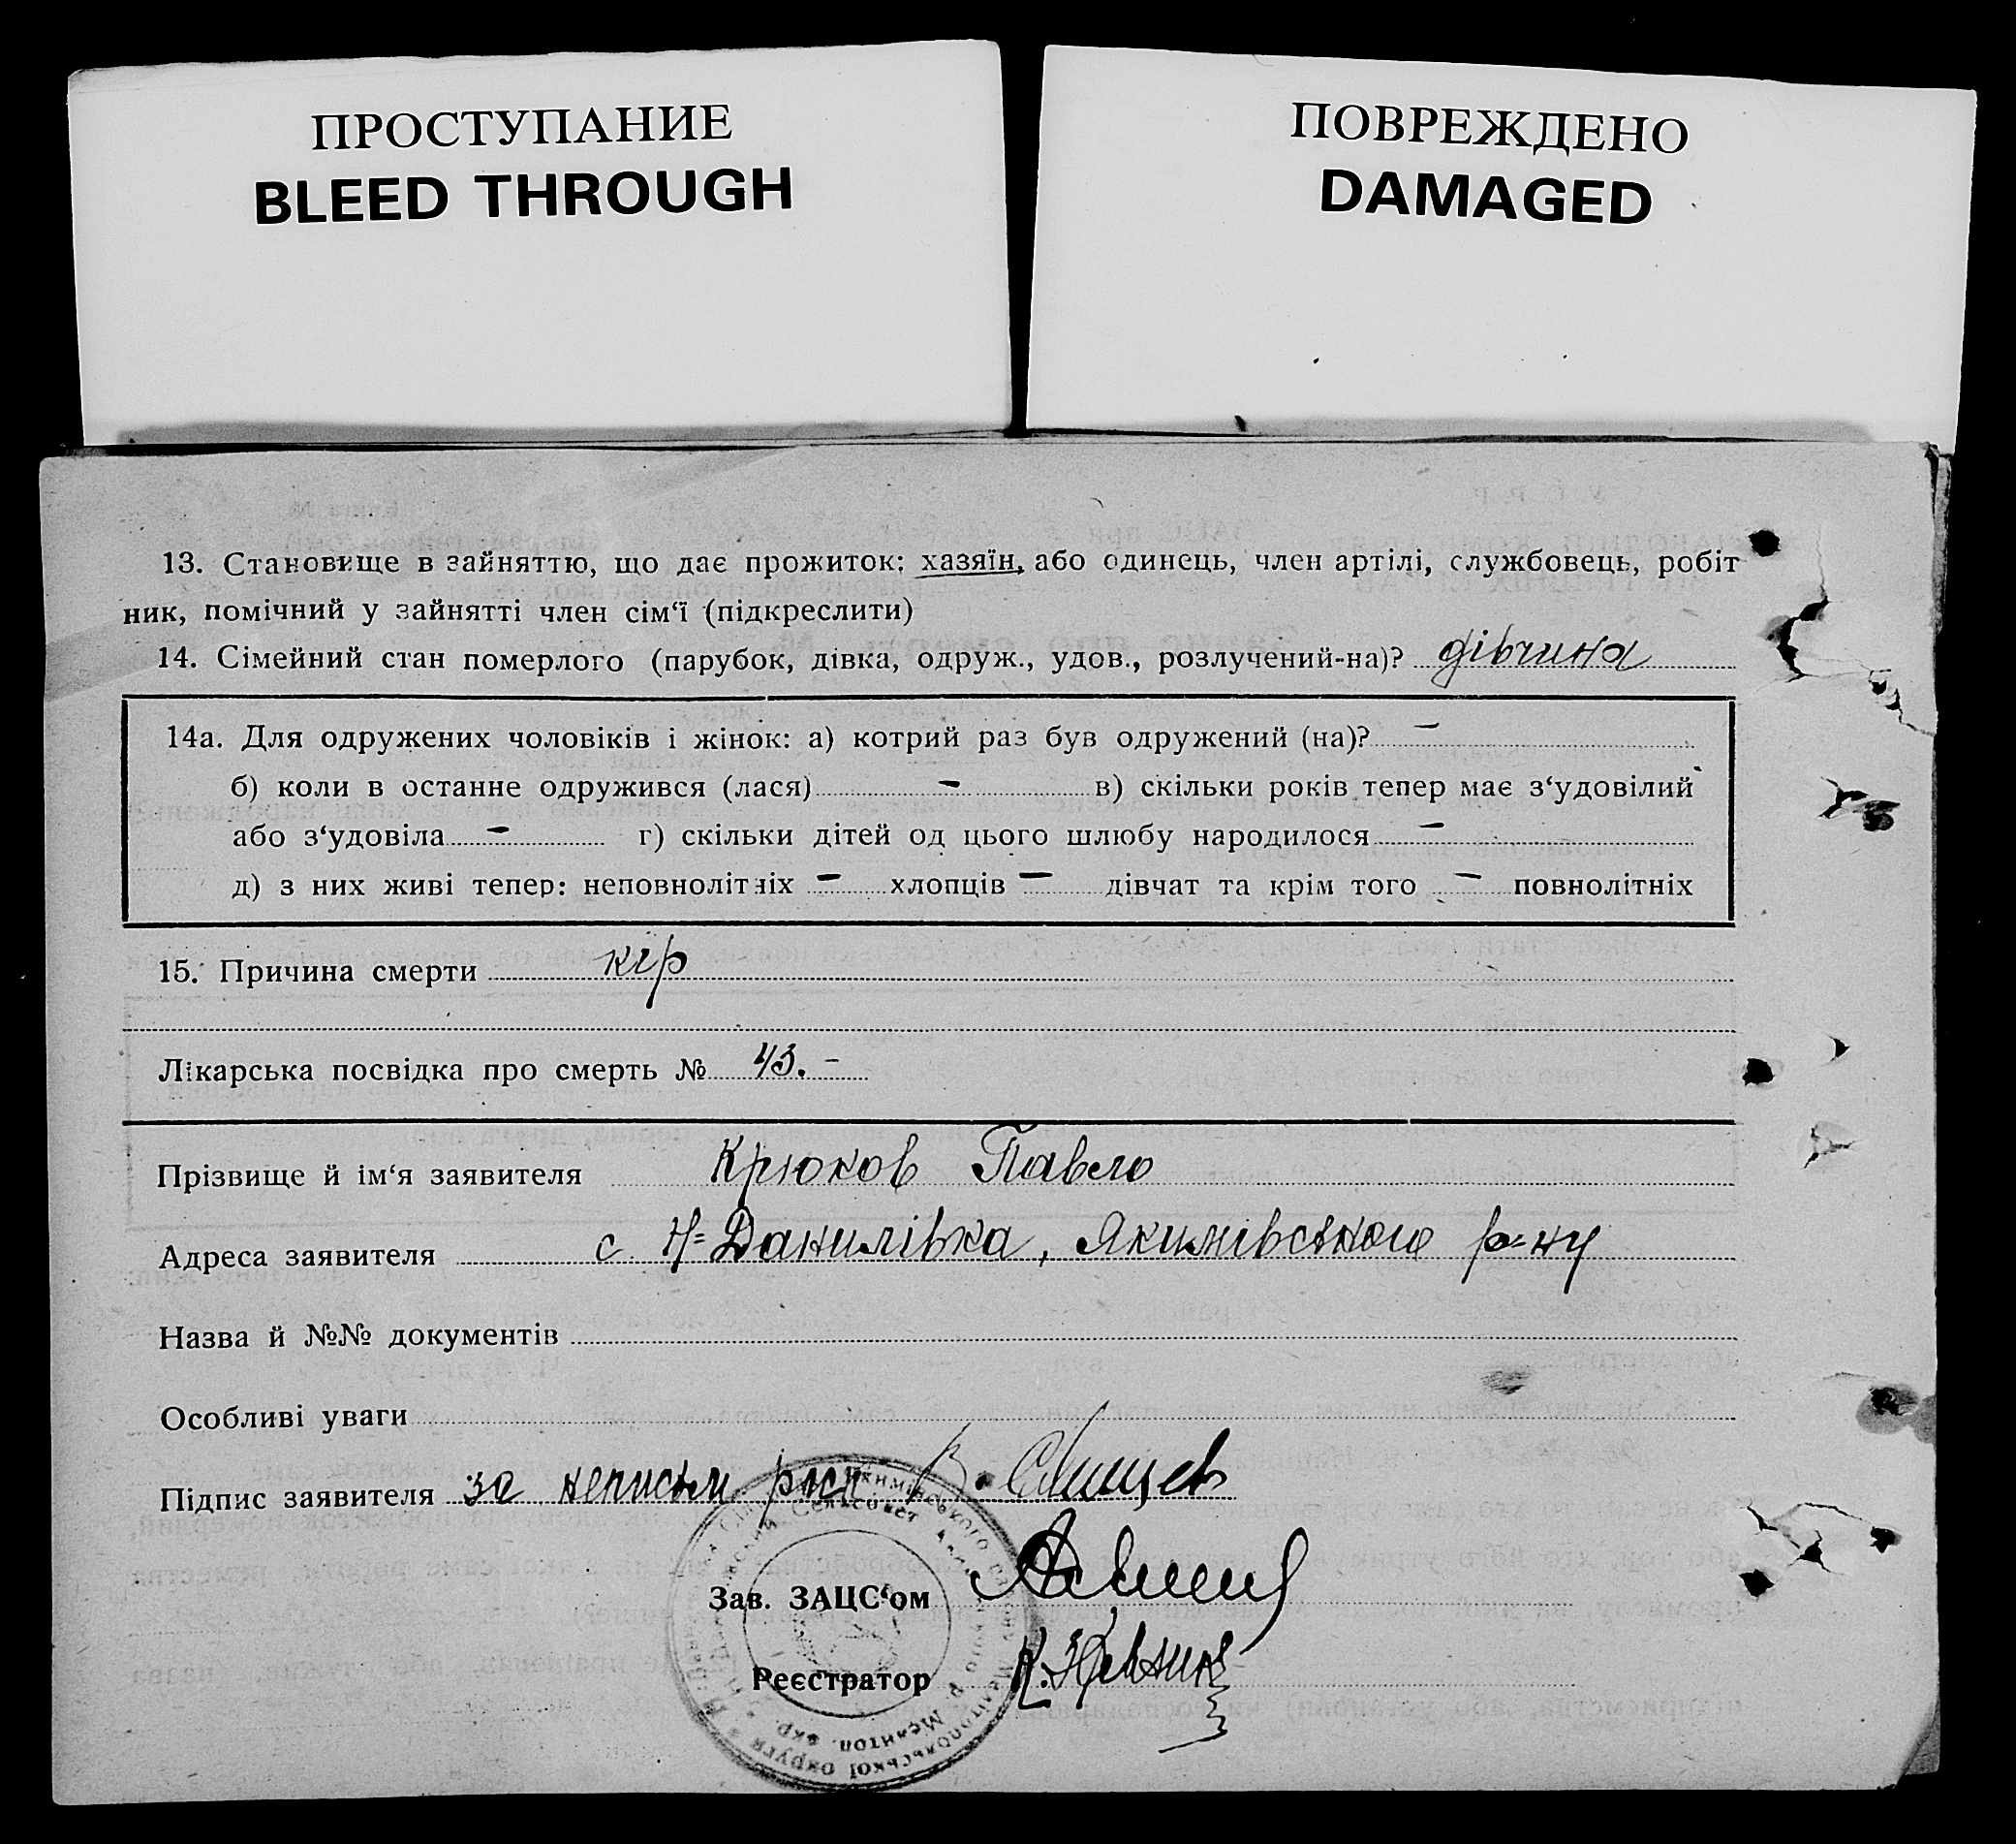 ПРОСТУПАНИЕ
BLEED THROUGH
ПОВРЕЖДЕНО
DAMAGED
13. Становище в зайняттю, що дає прожиток: хазяїн, або одинець, член артілі, службовець, робіт
ник, помічний у зайнятті член сім‘ї (підкреслити)
14. Сімейний стан померлого (парубок, дівка, одруж., удов., розлучений-на)? дівчина
14а. Для одружених чоловіків і жінок: а) котрий раз був одружений (на)? —
б) коли в останне одружився (лася) — в) скільки років тепер має з‘удовілий
або з‘удовіла — г) скільки дітей од цього шлюбу народилося —
д) з них живі тепер: неповнолітніх — хлопців — дівчат та крім того — повнолітніх
15. Причина смерти кір
Лікарська посвідка про смерть № 43. –
Прізвище й ім‘я заявителя Крюков Павло
Адреса заявителя с Н=Данилівка, Якимівського р=ну
Назва й №№ документів
Особливі уваги
Підпис заявителя за неписьм
Зав. ЗАЦС‘ом
Реєстратор